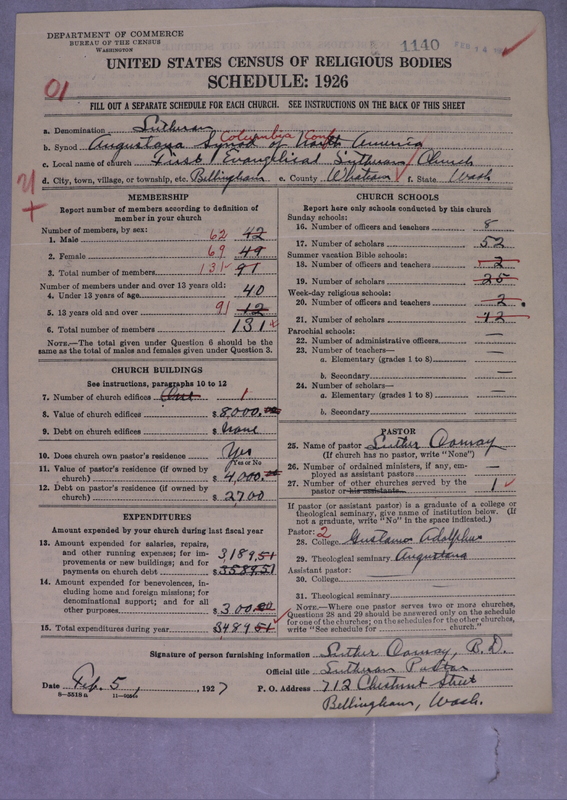 DEPARTMENT OF COMMERCE
BUREAU OF THE CENSUS
WASHINGTON
1140
FEB 14
UNITED STATES CENSUS OF RELIGIOUS BODIES
SCHEDULE: 1926
01
FILL OUT A SEPARATE SCHEDULE FOR EACH CHURCH. SEE INSTRUCTIONS ON THE BACK OF THIS SHEET
a. Denomination Lutheran
Columbia Conf
b. Synod Augustana Synod of North America
c. Local name of church First Evangelical Lutheran Church
d. City, town, village, or township, etc. Bellingham e. County Whatcom f. State Wash
MEMBERSHIP
Report number of members according to definition of member in your church
Number of members, by sex:
1. Male 62 42
2. Female 69 49
3. Total number of members 131 91
Number of members under and over 13 years old:
4. Under 13 years of age 40
5. 13 years old and over 91 12
6. Total number of members 131
NOTE.—The total given under Question 6 should be the same as the total of males and females given under Question 3.
CHURCH BUILDINGS
See instructions, paragraphs 10 to 12
7. Number of church edifices One 1
8. Value of church edifices $8,000.00
9. Debt on church edifices $None
10. Does church own pastor's residence? Yes
Yes or No
11. Value of pastor's residence (if owned by church) $4,000.00
12. Debt on pastor's residence (if owned by church) $2700
EXPENDITURES
Amount expended by your church during last fiscal year
13. Amount expended for salaries, repairs, and other running expenses; for improvements or new buildings; and for payments on church debt 3189,51
$3589.51
14. Amount expended for benevolences, including home and foreign missions; for denominational support; and for all other purposes $300.00
15. Total expenditures during year $3489 51
CHURCH SCHOOLS
Report here only schools conducted by this church
Sunday schools:
16. Number of officers and teachers 8
17. Number of scholars 52
Summer vacation Bible schools:
18. Number of officers and teachers 2
19. Number of scholars 25
Week-day religious schools:
20. Number of officers and teachers 2
21. Number of scholars 12
Parochial schools:
22. Number of administrative officers —
23. Number of teachers—
a. Elementary (grades 1 to 8) —
b. Secondary —
24. Number of scholars—
a. Elementary (grades 1 to 8) —
b. Secondary —
PASTOR
25. Name of pastor Luther
(If church has no pastor, write "None")
26. Number of ordained ministers, if any, employed as assistant pastors —
27. Number of other churches served by the pastor or his assistants 1
If pastor (or assistant pastor) is a graduate of a college or theological seminary, give name of institution below. (If not a graduate, write "No" in the space indicated.)
Pastor: 2
28. College Gustavus Adolphus
29. Theological seminary Augustana
Assistant pastor:
30. College —
31. Theological seminary
NOTE.—Where one pastor serves two or more churches, Questions 28 and 29 should be answered only on the schedule for one of the churches; on the schedules for the other churches, write "See schedule for ______ church."
Signature of person furnishing information Luther B.D.
Official title Lutheran Pastor
Date Feb. 5, 1927 P. O. Address 712 Chestnut Street
8—5518a
Bellingham, Wash.